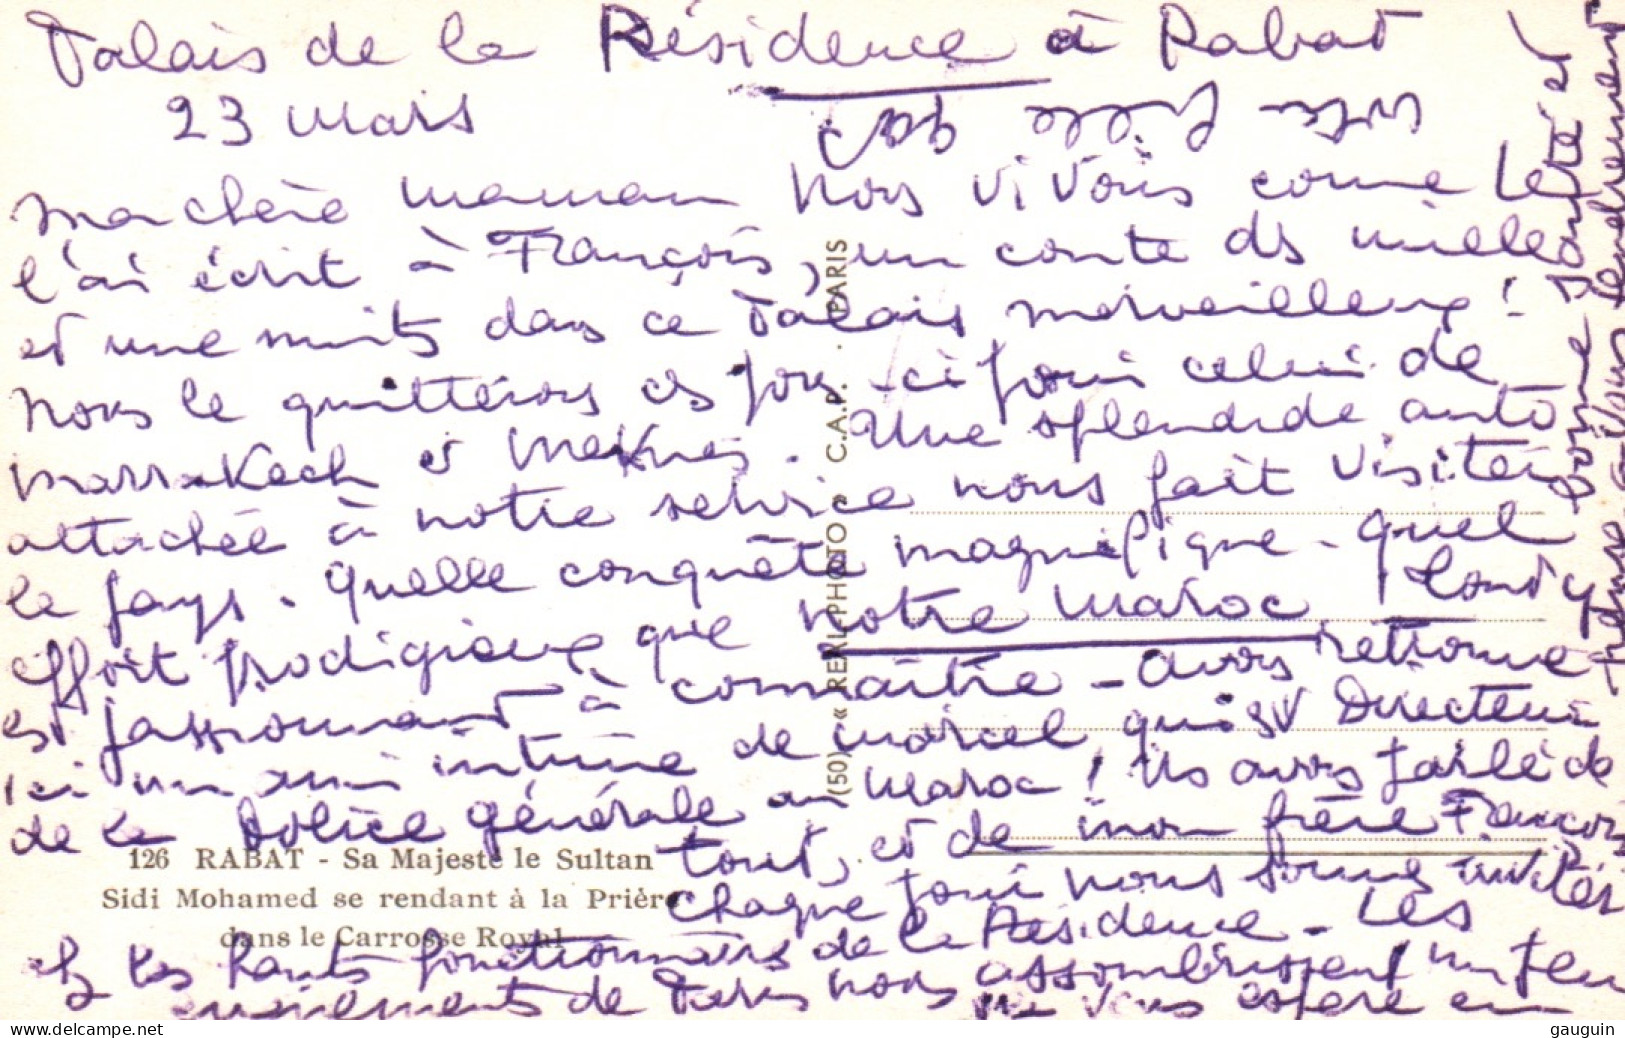 Palais de la Résidence à Rabat
23 Mars
Ma chère maman Nous vivons comme je
l'ai écrit à François, un conte ds mille
et une nuits dans ce Palais merveilleux !
Nous le quitterons ces jours-ci pour celui de
Marrakech et Meknès. Une splendide auto
attachée à notre service nous fait visiter
le pays. Quelle conquête magnifique - quel
effort prodigieux que notre Maroc !
est passionnant à connaître - avons retrouvé
ici un ami intime de Marcel qui est Directeur
de la Police générale au Maroc ! Ns avons parlé de
tout, et de mon frère François
chaque jour nous sommes invités
chez les hauts fonctionnaires de la Résidence - Les
événements de Paris nous assombrissent un peu
je vous espère en
bonne santé et
tendrement
votre fille
126 RABAT - Sa Majesté le Sultan
Sidi Mohamed se rendant à la Prière
dans le Carrosse Royal
(50) « REAL-PHOTO » C.A.P. - PARIS
www.delcampe.net
gauguin